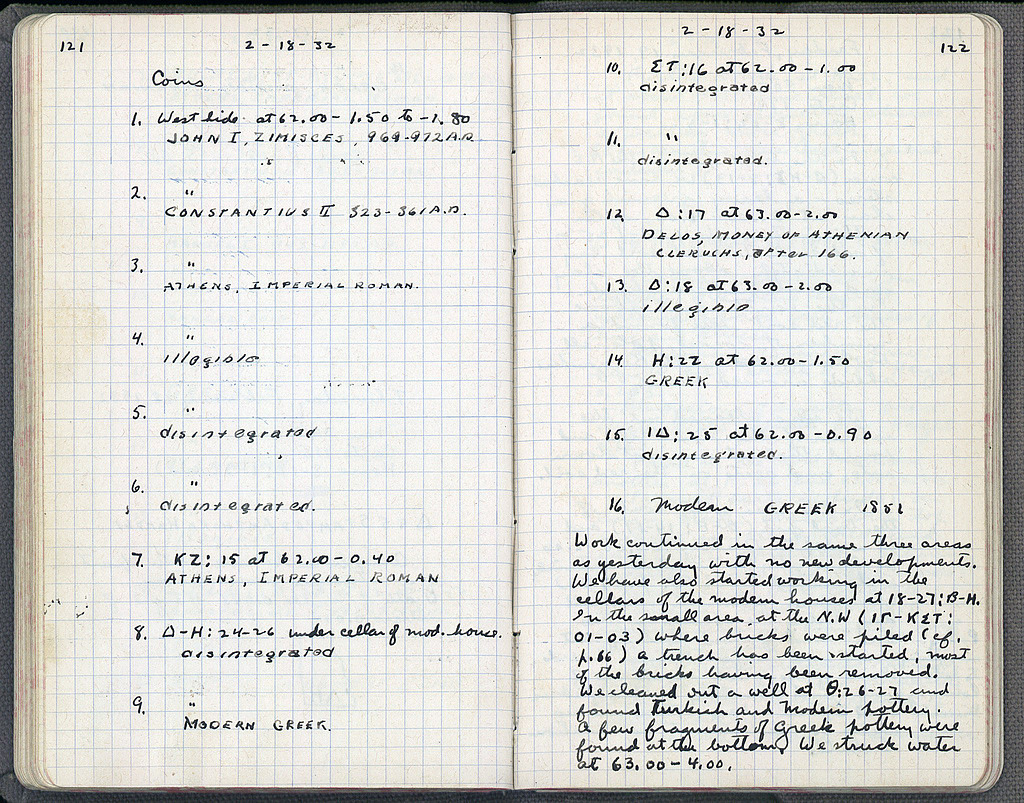 121
2-18-32
Coins
1. West side at 62.00 - 1.50 to -1.80
JOHN I, ZIMISCES, 969-972 A.D.
2. "
CONSTANTIUS II 323-361 A.D.
3. "
ATHENS, IMPERIAL ROMAN.
4. "
illegible
5. "
disintegrated
6. "
disintegrated.
7. KZ: 15 at 62.00 - 0.40
ATHENS, IMPERIAL ROMAN
8. Δ-H: 24-26 under cellar of mod. house.
disintegrated
9. "
MODERN GREEK.
2-18-32
122
10. ΣT:16 at 62.00 - 1.00
disintegrated
11. "
disintegrated.
12. Δ:17 at 63.00 - 2.00
DELOS, MONEY OF ATHENIAN
CLERUCHS, after 166.
13. Δ:18 at 63.00 - 2.00
illegible
14. H:22 at 62.00 - 1.50
GREEK
15. ΙΔ: 25 at 62.00 - 0.90
disintegrated.
16. Modern GREEK 1851
Work continued in the same three areas
as yesterday with no new developments.
We have also started working in the
cellars of the modern houses at 18-27: B-H.
In the small area, at the N.W (ΙΓ-ΚΣΤ:
01-03) where bricks were piled (cf.
p.66) a trench has been started, most
of the bricks having been removed.
We cleaned out a well at Θ:26-27 and
found Turkish and Modern pottery.
A few fragments of Greek pottery were
found at the bottom. We struck water
at 63.00 - 4.00.